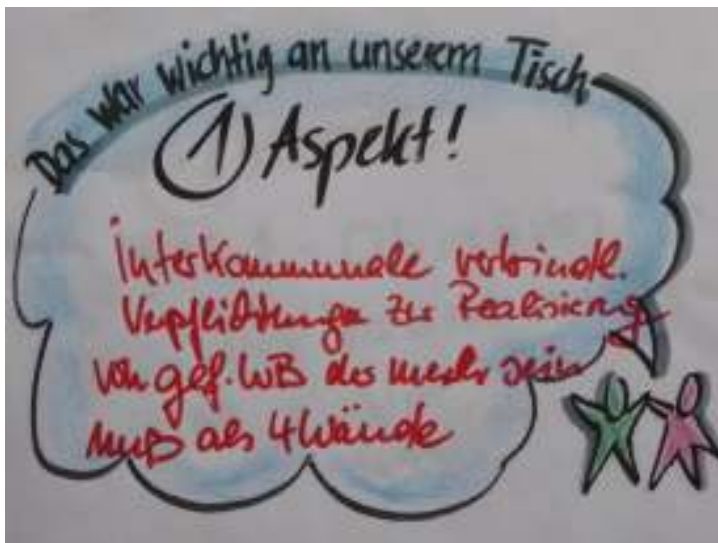 Das war wichtig an unserem Tisch
1) Aspekt!
Interkommunale verbindl.
Verpflichtungen zur Realisierung
von gef. WB das mehr sein
muß als 4 Wände